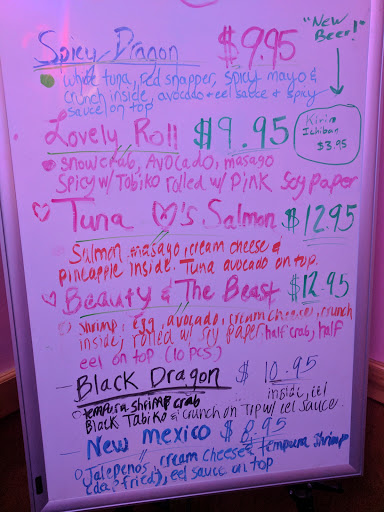 Spicy Dragon $9.95
"New Beer!"
white tuna, red snapper, spicy mayo &
crunch inside, avocado + eel sauce & spicy
sauce on top
Kirin
Ichiban
$3.95
Lovely Roll $9.95
snowcrab, Avocado, masago
spicy w/ Tobiko rolled w/ pink soy paper
Tuna ♡'s Salmon $12.95
Salmon masago, cream cheese &
pineapple inside. Tuna avocado on top.
Beauty & The Beast $12.95
shrimp, egg, avocado, cream cheese, crunch
inside, rolled w/ soy paper half crab, half
eel on top (10 pcs)
Black Dragon $10.95
tempura shrimp crab inside, eel
Black Tobiko & crunch on Top w/ eel sauce
New mexico $8.95
Jalepenos, cream cheese & tempura shrimp
fried), eel sauce on top